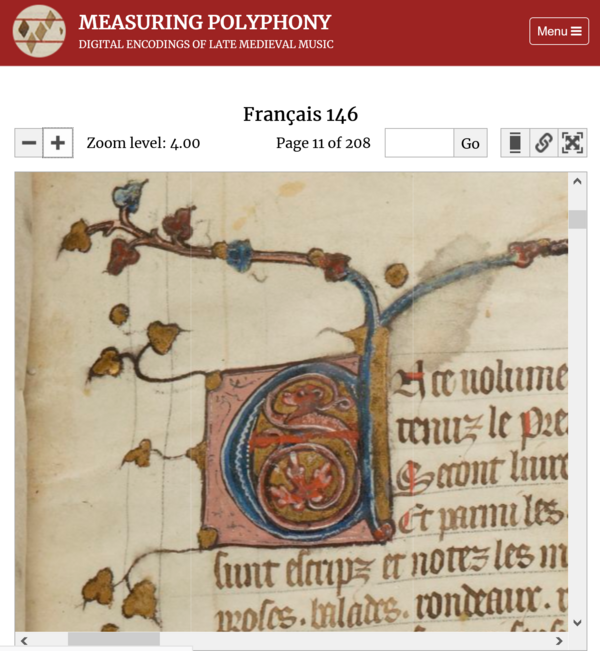 MEASURING POLYPHONY
DIGITAL ENCODINGS OF LATE MEDIEVAL MUSIC
Menu
Français 146
Zoom level: 4.00
Page 11 of 208
Go
E
N ce uolume
tenuz le pre
Secont liure
Et parmi les
sunt escripz et notez les m
proses. balades. rondeaux. r